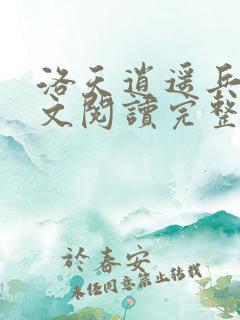 洛天逍遥兵
文閱讀完整
於春安
未经同意禁止转载